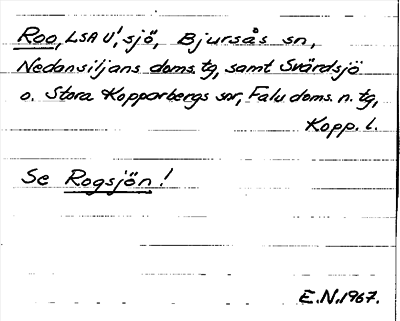 Roo, LSA U!, sjö, Bjursås sn,
Nedansiljans doms.tg, samt Svärdsjö
o. Stora Kopparbergs snr, Falu doms. n. tg,
Kopp. l.
Se Rogsjön!
E.N. 1967.